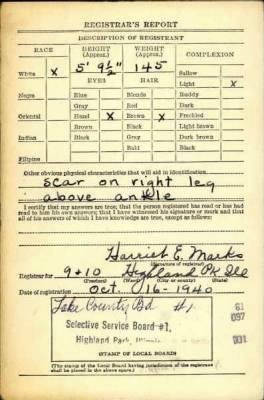 REGISTRAR'S REPORT
DESCRIPTION OF REGISTRANT
RACE HEIGHT (Approx.) WEIGHT (Approx.) COMPLEXION
White X 5' 9½" 145 Sallow
EYES HAIR Light X
Negro Blue Blonde Ruddy
Gray Red Dark
Oriental Hazel X Brown X Freckled
Brown Black Light brown
Indian Black Gray Dark brown
Bald Black
Filipino
Other obvious physical characteristics that will aid in identification
scar on right leg
above ankle
I certify that my answers are true; that the person registered has read or has had
read to him his own answers; that I have witnessed his signature or mark and that
all of his answers of which I have knowledge are true, except as follows:
Harriet E. Marks
(Signature of registrar)
Registrar for 9 + 10 Highland Pk Ill
(Ward) (City or county) (State)
Date of registration Oct. 16 - 1940
Lake County Bd #1
61
097
001
Selective Service Board #1,
Highland Park,
STAMP OF LOCAL BOARD)
(The stamp of the Local Board having jurisdiction of the registrant
shall be placed in the above space)